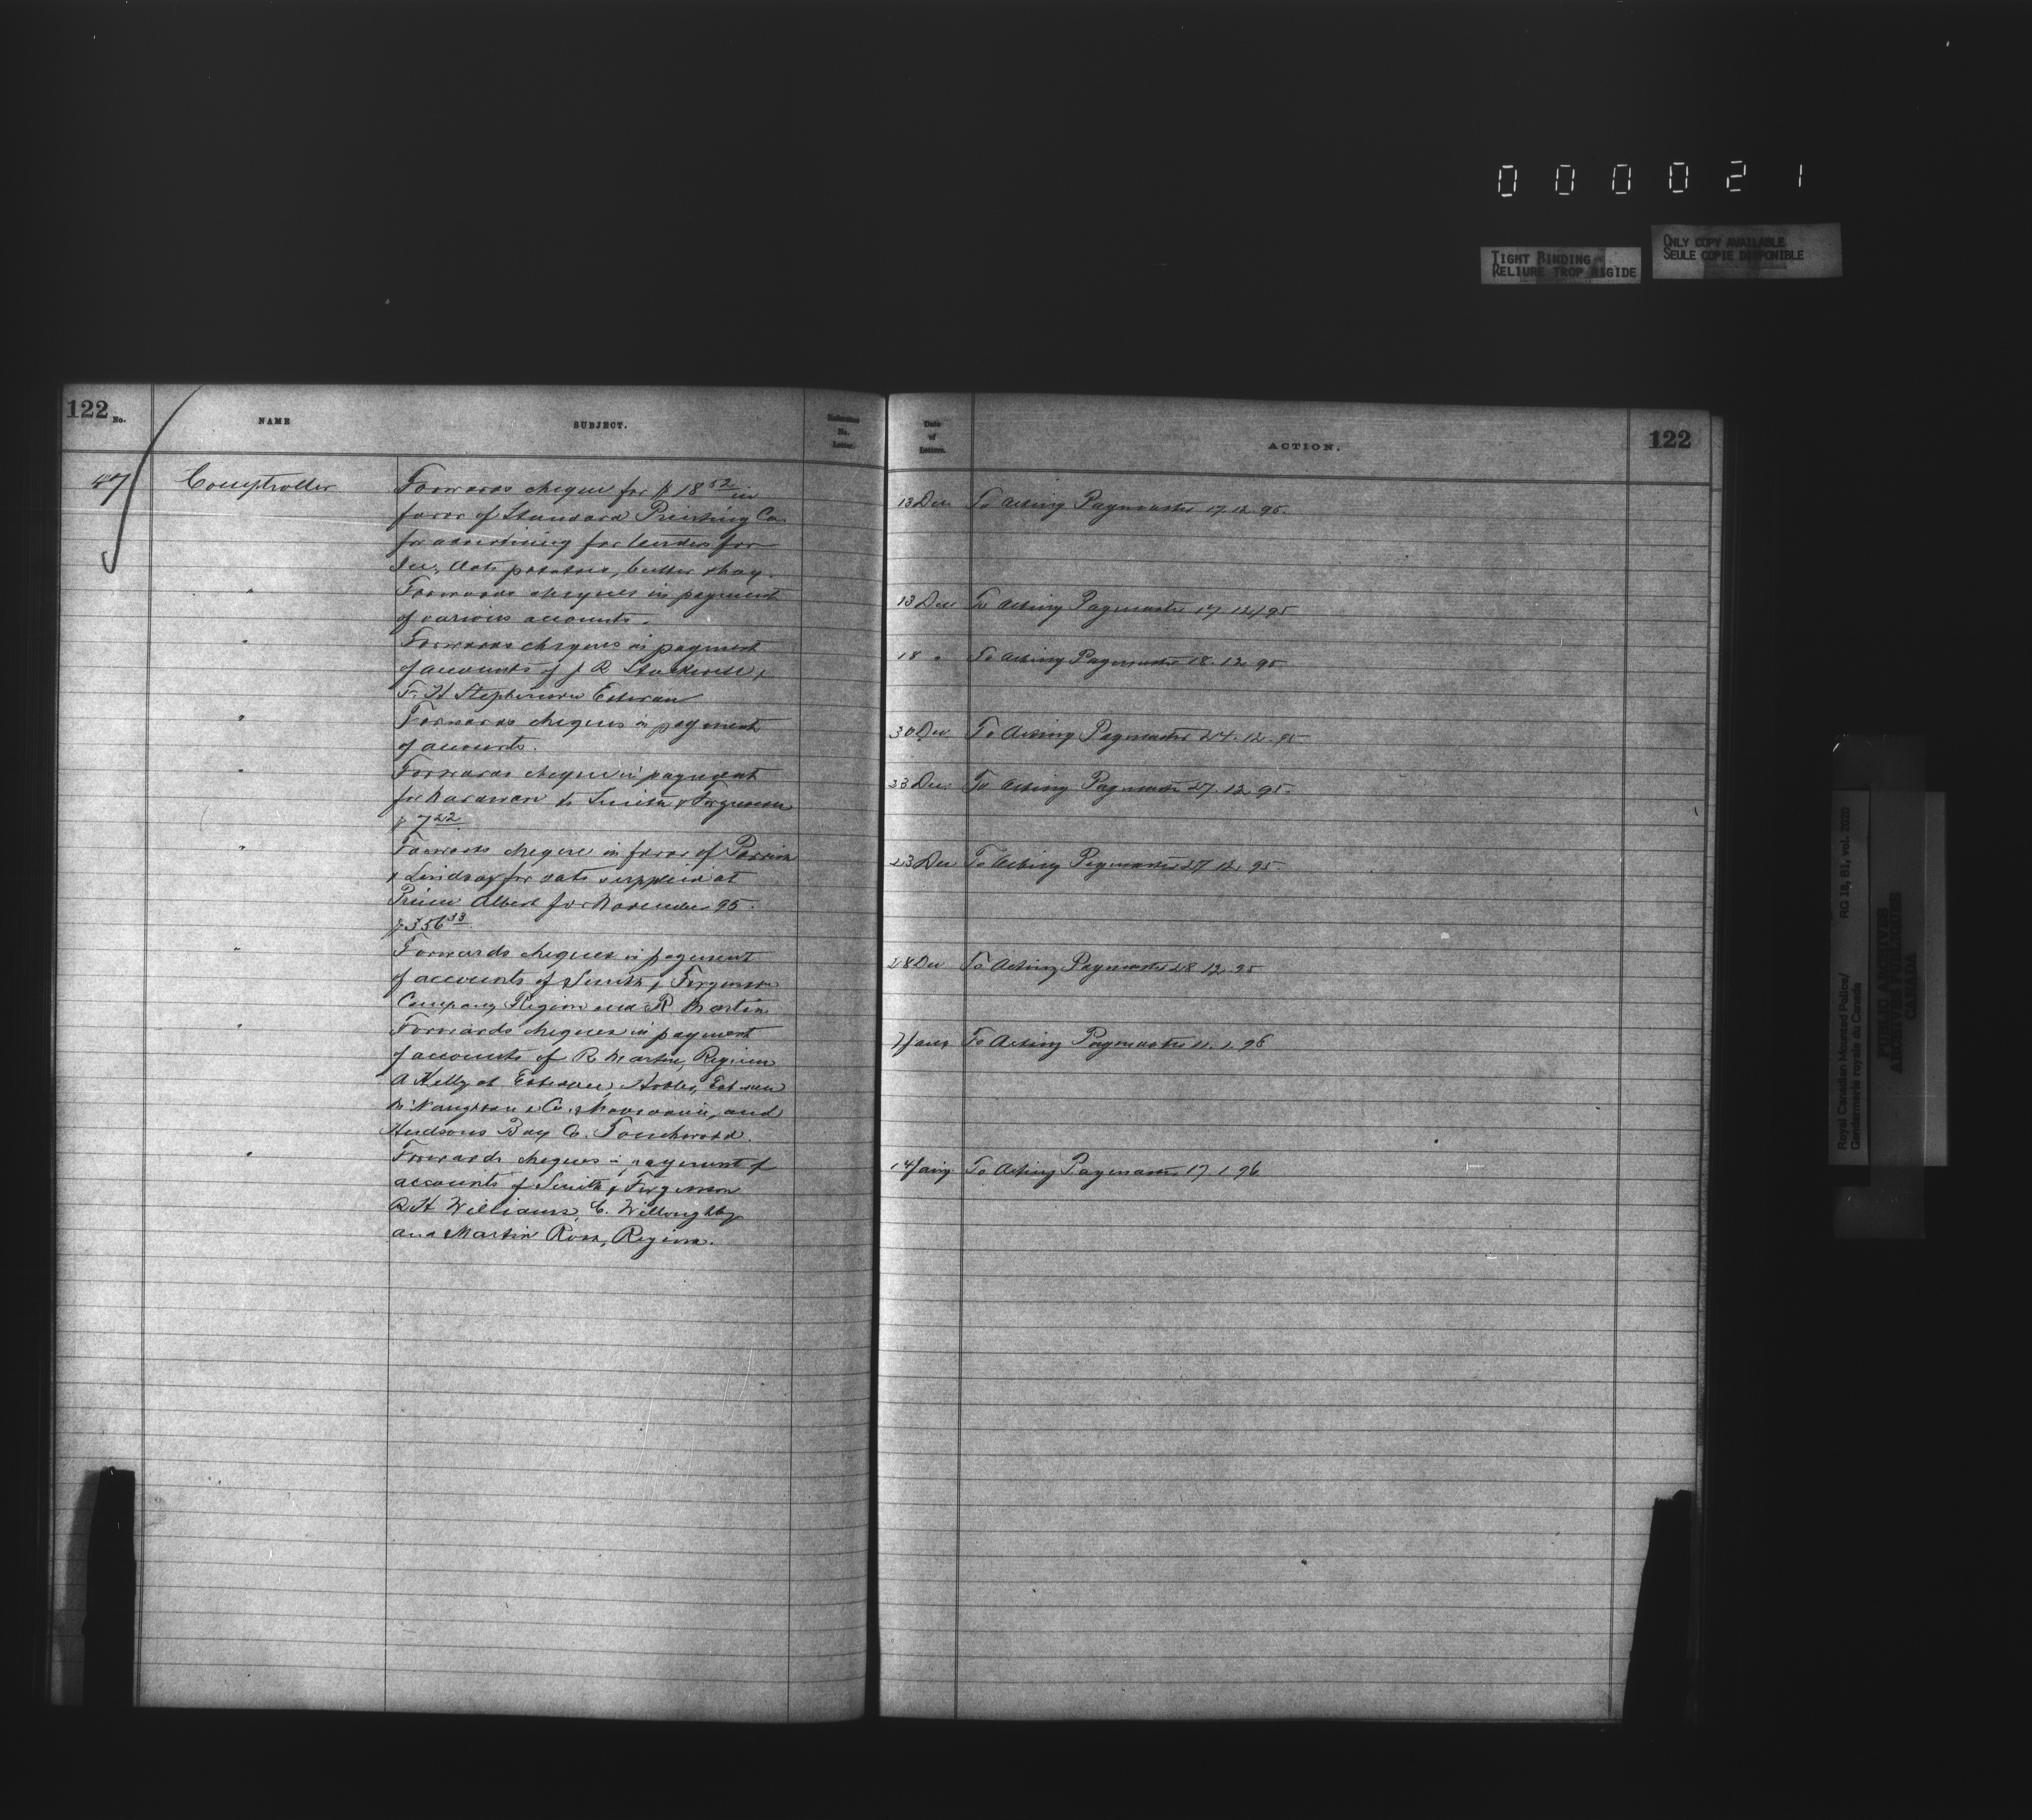 000021
TIGHT BINDING
RELIURE TROP RIGIDE
ONLY COPY AVAILABLE
SEULE COPIE DISPONIBLE
122
No.
NAME
SUBJECT.
Reference
No.
Letter.
47
Comptroller
Forwards cheque for $ 18 52 in
favor of Standard Printing Co
for advertising for tenders for
Ice, Oats potatoes, butter & hay.
" Forwards cheques in payment
of various accounts.
" Forwards cheques in payment
of accounts of J R &
F. H Stephenson Estevan
" Forwards cheques in payment
of accounts.
" Forwards cheque in payment
for hardware to Smith & Ferguson
$ 7 22
" Forwards cheque in favor of
& Lindsay for oats supplied at
Prince Albert for November 95.
$ 356 33
" Forwards cheques in payment
of accounts of Smith & Ferguson
Company Regina and R. Martin
" Forwards cheques in payment
of accounts of R Martin, Regina
A Kelly at Estevan, Estevan
& Co. and
Hudsons Bay Co. Touchwood.
" Forwards cheques in payment of
accounts of Smith & Ferguson
R H Williams, C. Willoughby
and Martin Ross, Regina.
Date
of
Letters.
ACTION.
122
13 Dec To Acting Paymaster 17.12.95.
13 Dec To Acting Paymaster 17.12/95
18 " To Acting Paymaster 18.12.95
30 Dec To Acting Paymaster 24.12.95
23 Dec To Acting Paymaster 27.12.95.
23 Dec To Acting Paymaster 27.12.95
28 Dec To Acting Paymaster 28.12.95
7 Jany To Acting Paymaster 11.1.96
14 Jany To Acting Paymaster 17.1.96
Royal Canadian Mounted Police/
Gendarmerie royale du Canada
RG 18, B1, vol. 2020
PUBLIC ARCHIVES
ARCHIVES PUBLIQUES
CANADA